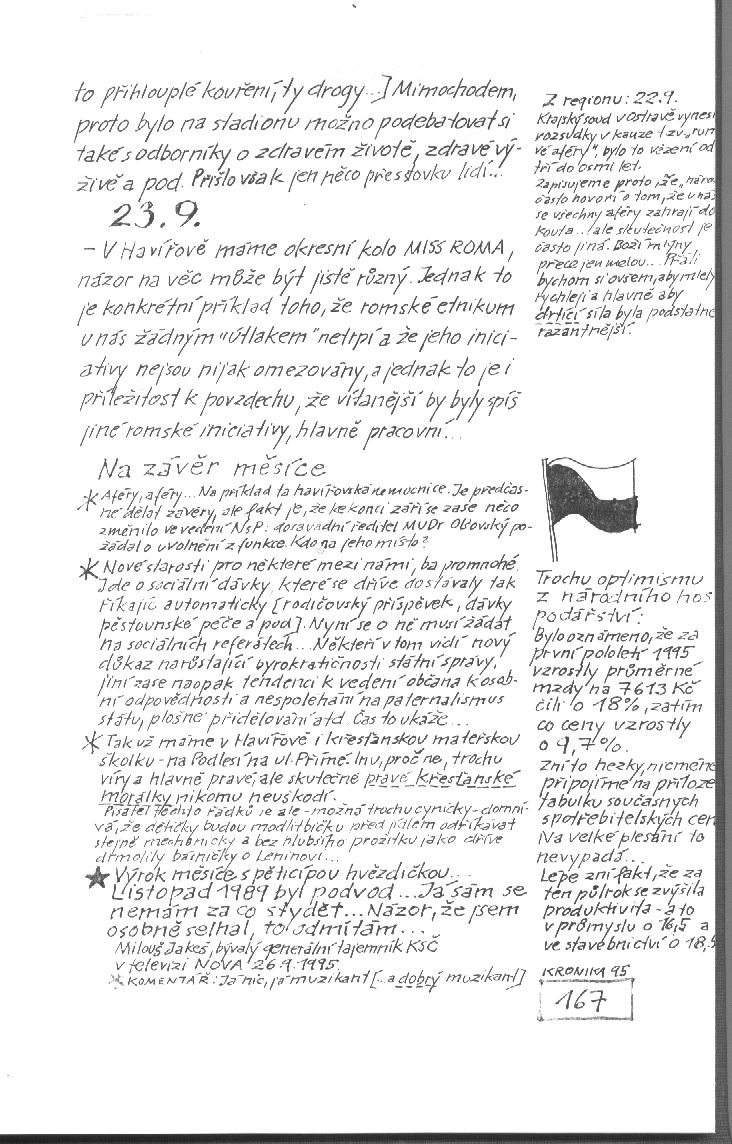 to přihlouplé kouření, ty drogy...] Mimochodem,
proto bylo na stadionu možno podebatovat si
také s odborníky o zdravém životě, zdravé vý-
živě a pod. Přišlo však jen něco přes stovku lidí...
23.9.
- V Havířově máme okresní kolo MISS ROMA,
názor na věc může být jistě různý. Jednak to
je konkrétní příklad toho, že romské etnikum
u nás žádným "útlakem" netrpí a že jeho inici-
ativy nejsou nijak omezovány, a jednak to je i
příležitost k povzdechu, že vítanější by byly spíš
jiné romské iniciativy, hlavně pracovní...
Na závěr měsíce
* Aféry, aféry... Na příklad ta havířovská nemocnice. Je předčas-
né dělat závěry, ale fakt je, že ke konci září se zase něco
změnilo ve vedení NsP: dosavadní ředitel MUDr Olšovský po-
žádal o uvolnění z funkce. Kdo ga jeho místo?
* Nové starosti pro některé mezi námi, ba pro mnohé.
Jde o sociální dávky, které se dříve dostávaly tak
říkajíc automaticky [rodičovský příspěvek, dávky
pěstounské péče a pod]. Nyní se o ně musí žádat
na sociálních referátech... Někteří v tom vidí nový
důkaz narůstající byrokratičnosti státní správy,
jiní zase naopak tendenci k vedení občana k osob-
ní odpovědnosti a nespoléhání na paternalismus
státu, plošné přidělování atd. Čas to ukáže...
* Tak už máme v Havířově i křesťanskou mateřskou
školku - na Podlesí na ul. Přímé. Inu, proč ne, trochu
víry a hlavně pravé, ale skutečně pravé křesťanské
morálky nikomu neuškodí.
Pisatel těchto řádků je ale - možná trochu cynicky - domní-
vá, že dětičky budou modlitbičku před jídlem odříkávat
stejně mechanicky a bez hlubšího prožitku jako dříve
drmolily básničky o Leninovi...
★ Výrok měsíce s pěticípou hvězdičkou...
Listopad 1989 byl podvod... Já sám se
nemám za co stydět... Názor, že jsem
osobně selhal, to odmítám...
Milouš Jakeš, bývalý generální tajemník KSČ
v televizi NOVA 26.9.1995
* KOMENTÁŘ: Já nic, já muzikant [...a dobrý muzikant]
Z regionu: 22.9.
Krajský soud v Ostravě vynesl
rozsudky v kauze tzv. "rum
vé aféry", bylo to vězení od
tří do osmi let.
Zapisujeme proto, že "národ
často hovoří o tom, že u nás
se všechny aféry zahrají do
kouta... ale skutečnost je
často jiná. Boží mlýny
přece jen melou... Přáli
bychom si ovšem, aby mlely
rychleji a hlavně aby
drtící síla byla podstatně
razantnější.
Trochu optimismu
z národního hos
podářství:
Bylo oznámeno, že za
první pololetí 1995
vzrostly průměrné
mzdy na 7613 Kč
čili o 18%, zatím
co ceny vzrostly
o 9,7%.
Zní to hezky, nicméně
připojíme na příloze
tabulku současných
spotřebitelských cen
Na velké plesání to
nevypadá...
Lépe zní fakt, že za
ten půlrok se zvýšila
produktivita - a to
v průmyslu o 16,5 a
ve stavebnictví o 18,5
KRONIKA 95
167